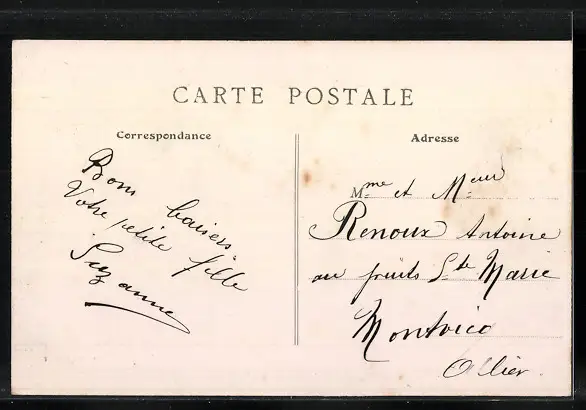 CARTE POSTALE
Correspondance
Bons baisers
Votre petite fille
Suzanne
Adresse
Mme et Meur
Renoux Antoine
au fruits Ste Marie
Montvicq
Allier